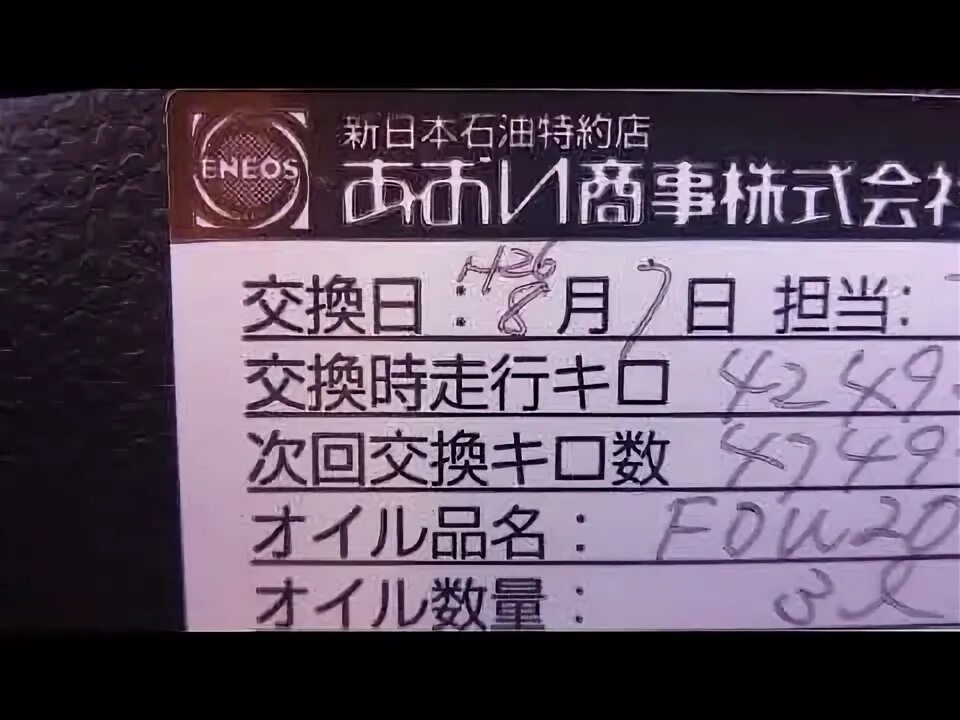 ENEOS
新日本石油特約店
あおい商事株式会社
H26
交換日:8月7日 担当:
交換時走行キロ 4249
次回交換キロ数 4749
オイル品名: F0W20
オイル数量: 3ℓ